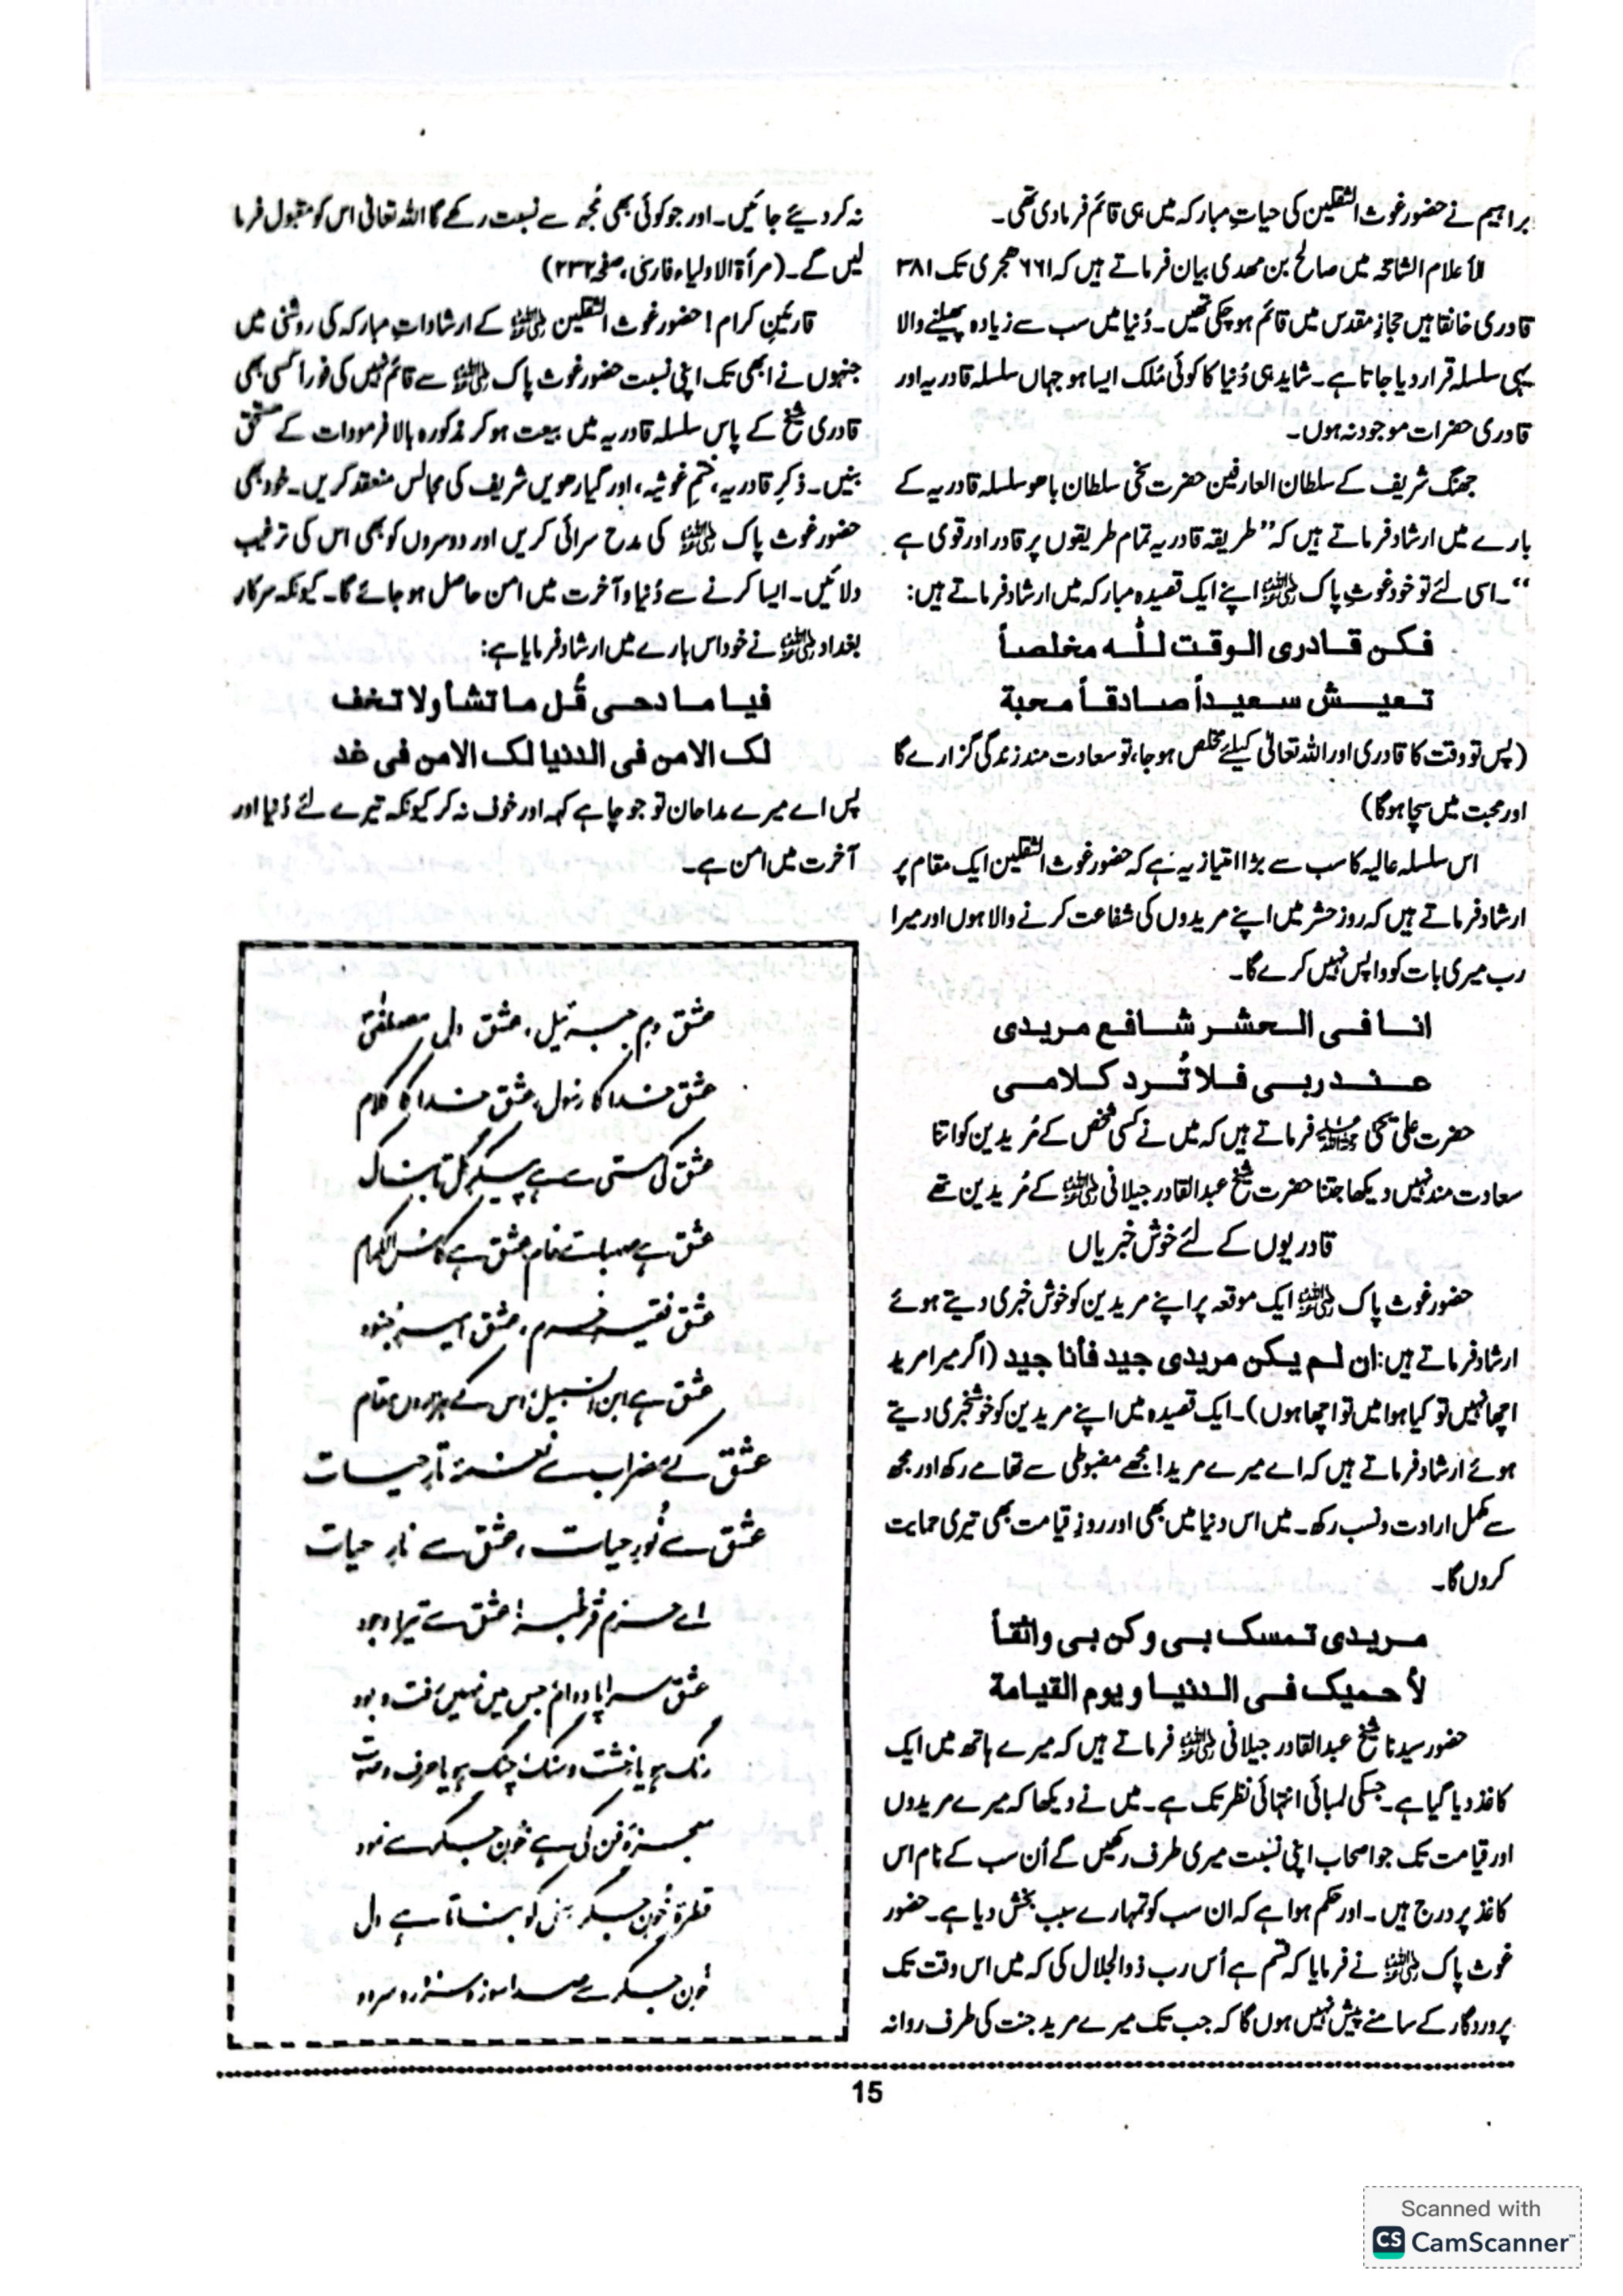 براہیم نے حضور غوث الثقلین کی حیاتِ مبارکہ میں ہی قائم فرما دی تھی۔
الأعلام الشامخہ میں صالح بن مہدی بیان فرماتے ہیں کہ ۶۶۱ ھجری تک ۳۸۱
قادری خانقاہیں حجازِ مقدس میں قائم ہو چکی تھیں۔ دُنیا میں سب سے زیادہ پھیلنے والا
یہی سلسلہ قرار دیا جاتا ہے۔ شاید ہی دُنیا کا کوئی مُلک ایسا ہو جہاں سلسلہ قادریہ اور
قادری حضرات موجود نہ ہوں۔
جھنگ شریف کے سلطان العارفین حضرت سخی سلطان باھو سلسلہ قادریہ کے
بارے میں ارشاد فرماتے ہیں کہ ”طریقہ قادریہ تمام طریقوں پر قادر اور قوی ہے
“۔ اسی لئے تو خود غوثِ پاک رضی اللہ عنہ اپنے ایک قصیدہ مبارکہ میں ارشاد فرماتے ہیں:
فکن قادری الوقت للّٰہ مخلصاً
تعیش سعیداً صادقاً محبة
(پس تو وقت کا قادری اور اللہ تعالیٰ کیلئے مخلص ہو جا، تو سعادت مند زندگی گزارے گا
اور محبت میں سچا ہوگا)
اس سلسلہ عالیہ کا سب سے بڑا امتیاز یہ ہے کہ حضور غوث الثقلین ایک مقام پر
ارشاد فرماتے ہیں کہ روزِ حشر میں اپنے مریدوں کی شفاعت کرنے والا ہوں اور میرا
رب میری بات کو واپس نہیں کرے گا۔
انا فی الحشر شافع مریدی
عند ربی فلا تُرد کلامی
حضرت علی یحیٰ رحمۃ اللہ علیہ فرماتے ہیں کہ میں نے کسی شخص کے مُریدین کو اتنا
سعادت مند نہیں دیکھا جتنا حضرت شیخ عبدالقادر جیلانی رضی اللہ عنہ کے مُریدین تھے
قادریوں کے لئے خوش خبریاں
حضور غوث پاک رضی اللہ عنہ ایک موقعہ پر اپنے مریدین کو خوش خبری دیتے ہوئے
ارشاد فرماتے ہیں: ان لم یکن مریدی جید فأنا جید (اگر میرا مرید
اچھا نہیں تو کیا ہوا میں تو اچھا ہوں)۔ ایک قصیدہ میں اپنے مریدین کو خوشخبری دیتے
ہوئے ارشاد فرماتے ہیں کہ اے میرے مرید! مجھے مضبوطی سے تھامے رکھ اور مجھ
سے مکمل ارادت و نسب رکھ۔ میں اس دنیا میں بھی اور روزِ قیامت بھی تیری حمایت
کروں گا۔
مریدی تمسک بی و کن بی واثقاً
لأحمیک فی الدنیا و یوم القیامة
حضور سیدنا شیخ عبدالقادر جیلانی رضی اللہ عنہ فرماتے ہیں کہ میرے ہاتھ میں ایک
کاغذ دیا گیا ہے۔ جسکی لمبائی انتہائی نظر تک ہے۔ میں نے دیکھا کہ میرے مریدوں
اور قیامت تک جو اصحاب اپنی نسبت میری طرف رکھیں گے اُن سب کے نام اس
کاغذ پر درج ہیں۔ اور حکم ہوا ہے کہ ان سب کو تمہارے سبب بخش دیا ہے۔ حضور
غوث پاک رضی اللہ عنہ نے فرمایا کہ قسم ہے اُس رب ذوالجلال کی کہ میں اس وقت تک
پروردگار کے سامنے پیش نہیں ہوں گا کہ جب تک میرے مرید جنت کی طرف روانہ
نہ کر دیئے جائیں۔ اور جو کوئی بھی مُجھ سے نسبت رکھے گا اللہ تعالیٰ اس کو مقبول فرما
لیں گے۔ (مرأۃ الاولیاء فارسی، صفحہ ۲۳۲)
قارئینِ کرام! حضور غوث الثقلین رضی اللہ عنہ کے ارشاداتِ مبارکہ کی روشنی میں
جنہوں نے ابھی تک اپنی نسبت حضور غوث پاک رضی اللہ عنہ سے قائم نہیں کی فوراً کسی بھی
قادری شیخ کے پاس سلسلہ قادریہ میں بیعت ہو کر مذکورہ بالا فرمودات کے مستحق
بنیں۔ ذکرِ قادریہ، ختمِ غوثیہ، اور گیارھویں شریف کی مجالس منعقد کریں۔ خود بھی
حضور غوث پاک رضی اللہ عنہ کی مدح سرائی کریں اور دوسروں کو بھی اس کی ترغیب
دلائیں۔ ایسا کرنے سے دُنیا و آخرت میں امن حاصل ہو جائے گا۔ کیونکہ سرکار
بغداد رضی اللہ عنہ نے خود اس بارے میں ارشاد فرمایا ہے:
فیا مادحی قُل ما تشأ ولا تخف
لک الامن فی الدنیا لک الامن فی غد
پس اے میرے مداحان تو جو چاہے کہہ اور خوف نہ کر کیونکہ تیرے لئے دُنیا اور
آخرت میں امن ہے۔
عشق دمِ جبرئیل، عشق دلِ مصطفیٰؐ
عشق خدا کا رسول، عشق خدا کا کلام
عشق کی مستی سے ہے پیکرِ گل تابناک
عشق ہے صہبائے خام، عشق ہے کاس الکرام
عشق فقیہِ حرم، عشق امیرِ جنود
عشق ہے ابن السبیل، اس کے ہزاروں مقام
عشق کے مضراب سے نغمۂ تارِ حیات
عشق سے نُورِ حیات، عشق سے نارِ حیات
اے حرمِ قرطبہ! عشق سے تیرا وجود
عشق سراپا دوام جس میں نہیں رفت و بود
رنگ ہو یا خشت و سنگ، چنگ ہو یا حرف و صوت
معجزۂ فن کی ہے خونِ جگر سے نمود
قطرۂ خُونِ جگر، سِل کو بناتا ہے دل
خُونِ جگر سے صدا سوز و سرور و سرود
15
Scanned with
CS CamScanner™